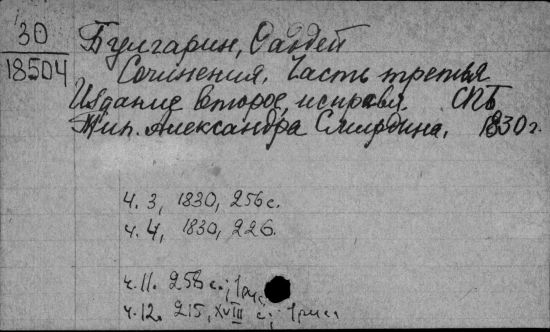 30
18504
Булгарин, Фаддей
Сочинения. Часть третья
Издание второе, исправл. СПБ
Тип. Александра Смирдина, 1830 г.
ч. 3, 1830, 256 с.
ч. 4, 1830, 226.
ч. 11. 258 с.; 1рис
ч. 12. 215, XVIII с.; 1рис.